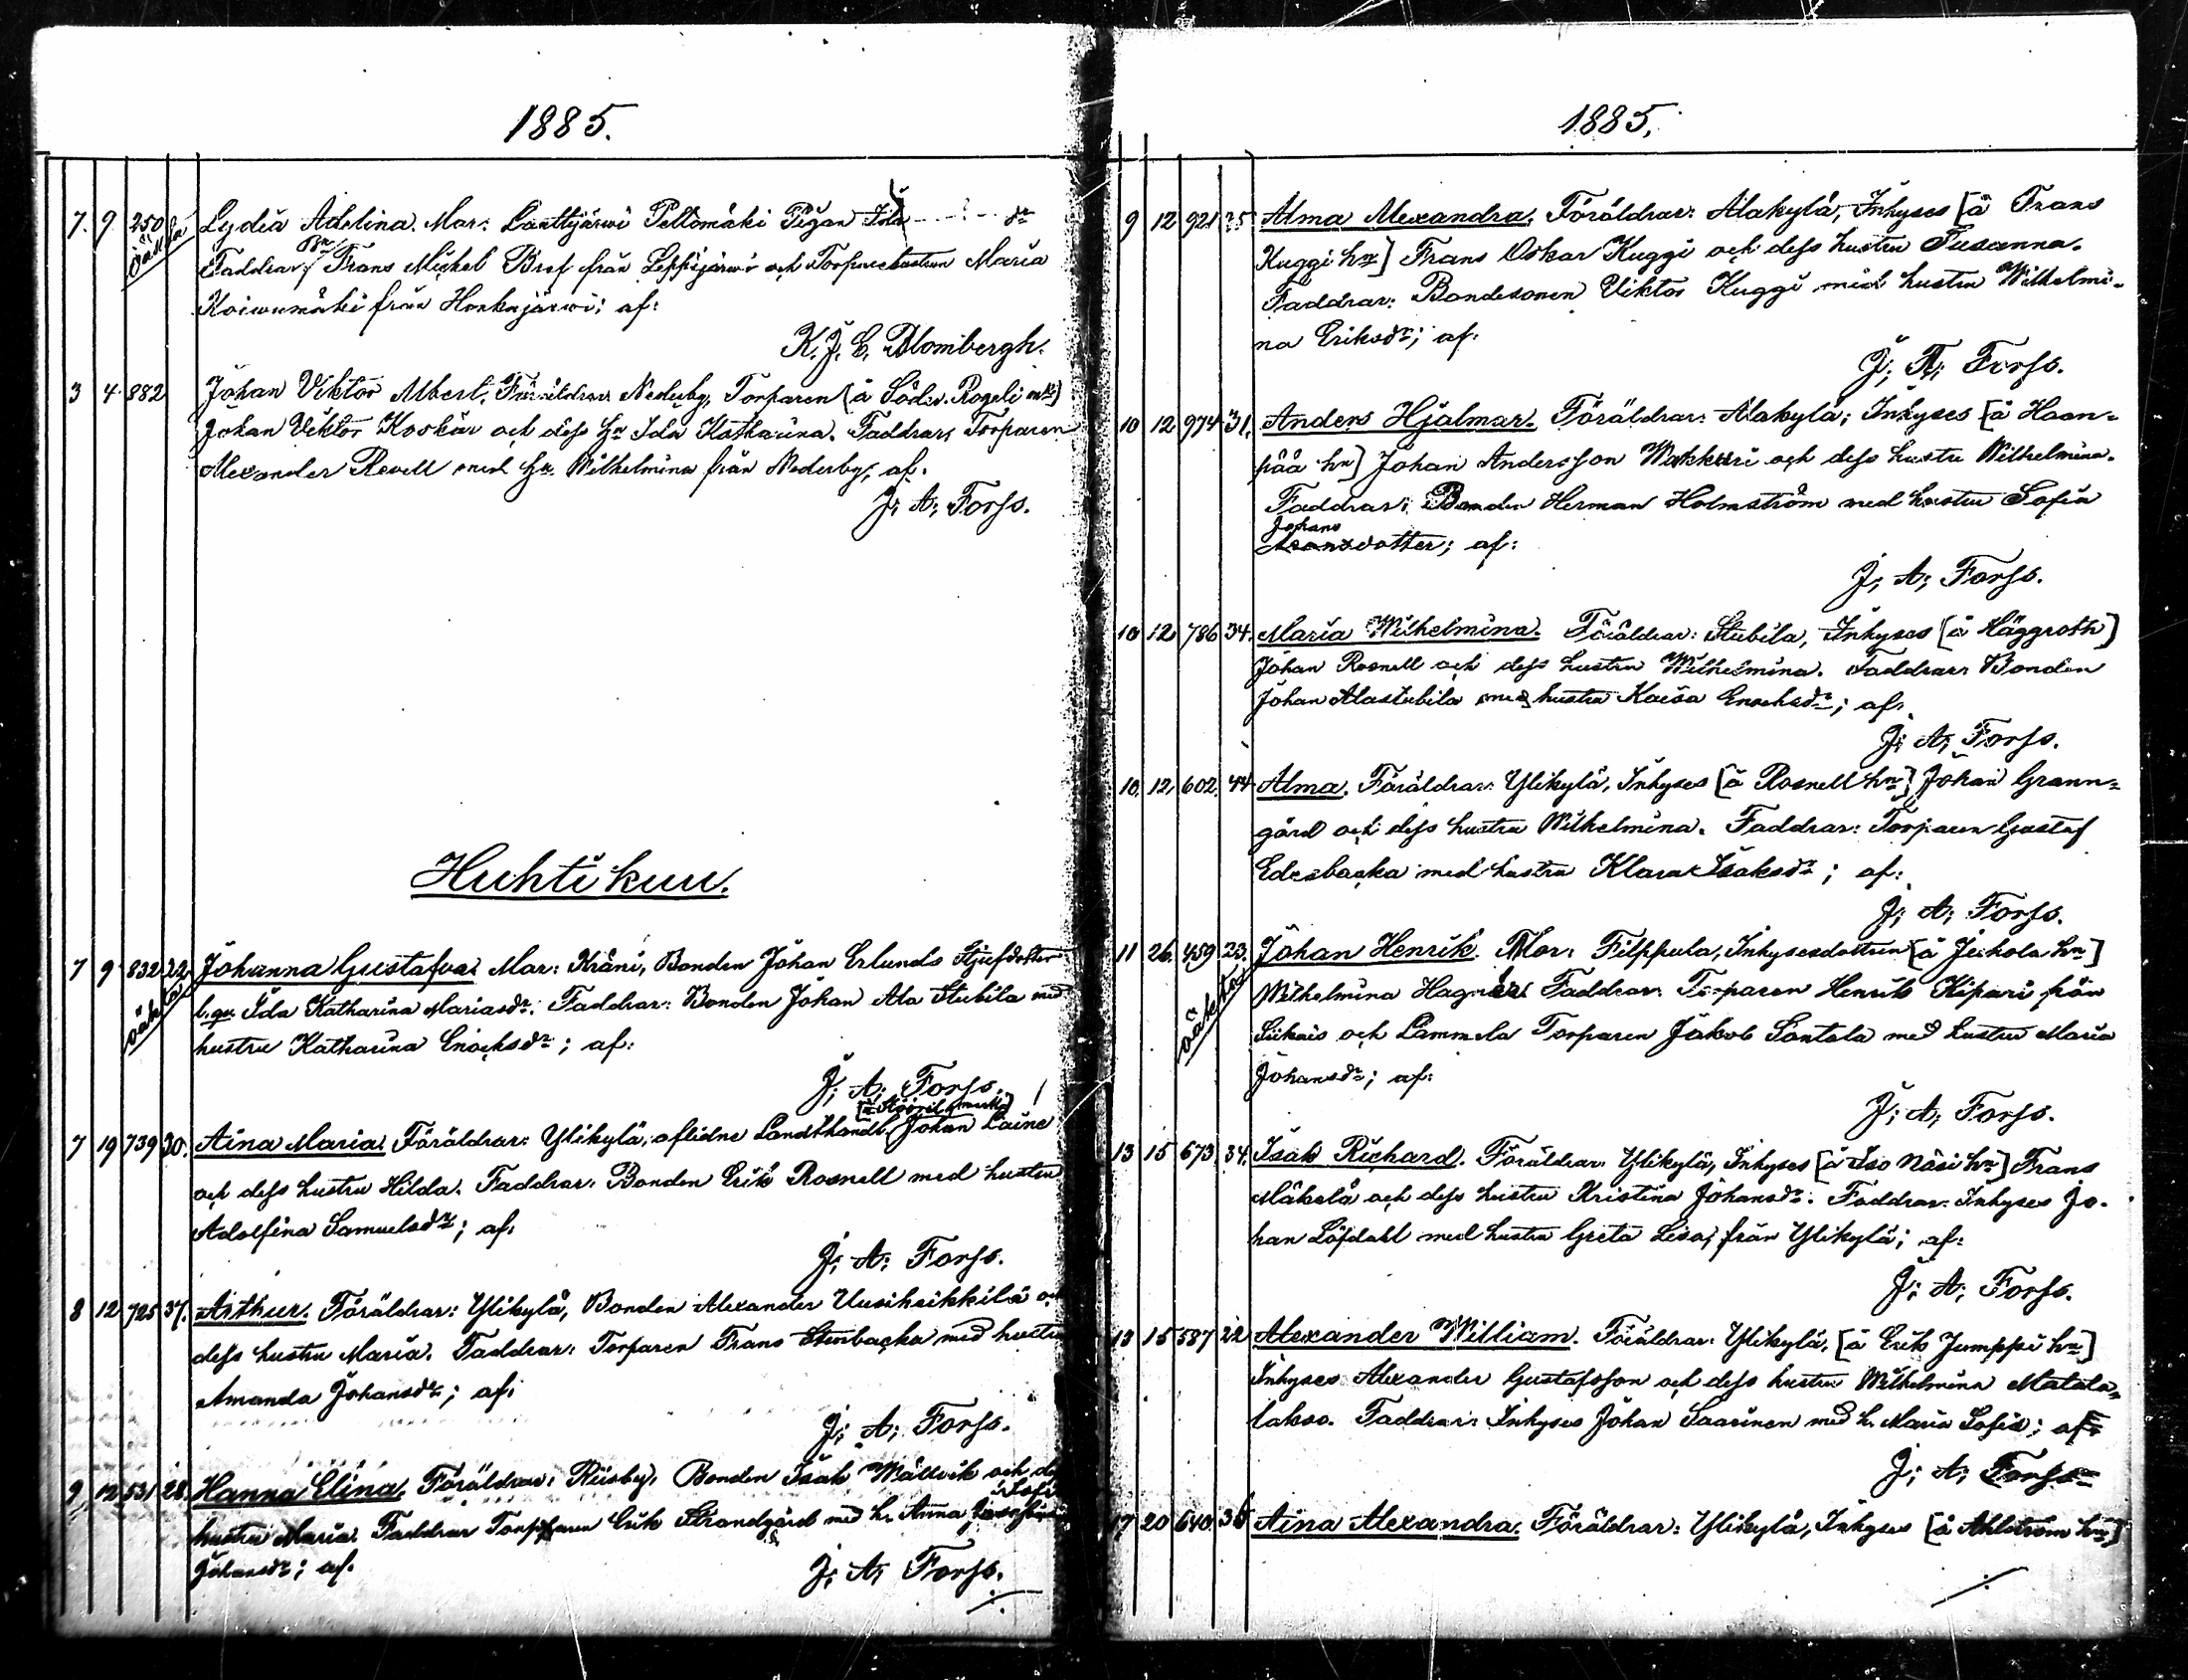 1885.
7. 9 250 Lydia Adelina. Mor: Lanttjärwi Peltomäki Pigan Ida - - - ? - - - dr
oäkta
Faddrar: Bn Frans Mickel Bref från Leppijärwi och Torparehustrun Maria
Koiwumäki från Honkajärwi; af:
K. J. E. Blombergh.
3 4 882 Johan Viktor Albert. Föräldrar Nederby, Torparen (å Söder Rogeli mk)
Johan Viktor Koskär och dess hu Ida Katharina. Faddrar, Torparen
Alexander Revell med hu Wilhelmina från Nederby, af.
J; A; Forss.
Huhtikuu.
7 9 832 22. Johanna Gustafva. Mor: Kräni, Bonden Johan Erlunds Styfdotter
oäkta
l. qv. Ida Katharina Mariasdr. Faddrar: Bonden Johan Ala Stubila med
hustru Katharina Enochsdr; af:
J; A; Forss.
7 19 739 30. Aina Maria. Föräldrar: Ylikylä, aflidne Landthandl. Johan Laine
och dess hustru Hilda. Faddrar. Bonden Erik Rosnell med hustru
Adolfina Samuelsdr; af:
J; A; Forss.
8 12 725 37. Arthur. Föräldrar: Ylikylä, Bonden Alexander Uusiheikkilä och
dess hustru Maria. Faddrar: Torparen Frans Stenbacka med hustru
Amanda Johansdr; af:
J; A; Forss.
9 12 531 28. Hanna Elina. Föräldrar: Riisby, Bonden Isak Wällvik och
Sofia
hustru Maria. Faddrar Torparen Erik Strandgård med h. Anna
Johansdr; af.
J; A; Forss.
1885.
9 12 921 25 Alma Alexandra. Föräldrar: Alakylä, Inhyses [å Frans
Kuggi hm] Frans Oskar Kuggi och dess hustru Susanna.
Faddrar: Bondesonen Viktor Kuggi med hustru Wilhelmi-
na Eriksdr; af:
J; A; Forss.
10 12 974 31. Anders Hjalmar. Föräldrar: Alakylä; Inhyses [å Haan-
pää hm] Johan Andersson Wakkuri och dess hustru Wilhelmina.
Faddrar: Bonden Herman Holmström med hustru Sofia
Johans
dotter; af:
J; A; Forss.
10 12 786 34. Maria Wilhelmina. Föräldrar: Stubila, Inhyses [å Häggroth]
Johan Rosnell och dess hustru Wilhelmina. Faddrar: Bonden
Johan Alastubila med hustru Kaisa Enochsdr; af:
J; A; Forss.
10. 12. 602. 44 Alma. Föräldrar: Ylikylä, Inhyses [å Rosnell hm] Johan Grann-
gård och dess hustru Wilhelmina. Faddrar: Torparen Gustaf
Edesbacka med hustru Klara Isaksdr; af:
J; A; Forss.
11 26. 459 23. Johan Henrik. Mor: Filppula, Inhysesdottren [å Jeskola hm]
oäkta
Wilhelmina Hagnäs Faddrar: Torparen Henrik Kipari från
Siikais och Lammela Torparen Jakob Santala med hustru Maria
Johansdr; af:
J; A; Forss.
13 15 673 34. Isak Richard. Föräldrar: Ylikylä, Inhyses [å Iso Näsi hm] Frans
Mäkelä och dess hustru Kristina Johansdr. Faddrar: Inhyses Jo-
han Löfdahl med hustru Greta Lisa, från Ylikylä; af:
J; A; Forss.
13 15 587 22 Alexander William. Föräldrar: Ylikylä, [å Erik Jumppi hm]
Inhyses Alexander Gustafsson och dess hustru Wilhelmina Matala-
lakso. Faddrar: Inhyses Johan Saarinen med h. Maria Sofia; af:
J; A; Forss.
17 20 640. 36 Aina Alexandra. Föräldrar: Ylikylä, Inhyses [å Ahlström hm]